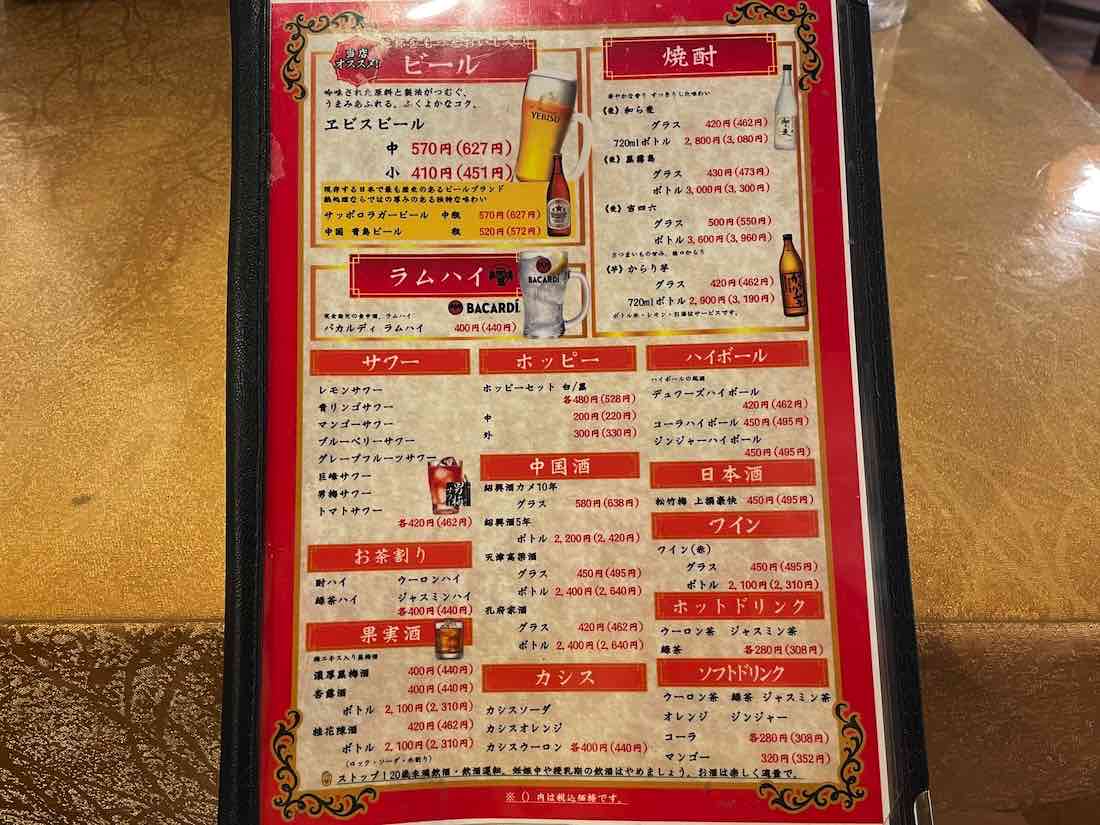 当店
オススメ!
ビール
吟味された原料と製法がつむぐ、
うまみあふれる、ふくよかなコク。
ヱビスビール
中 570円(627円)
小 410円(451円)
YEBISU
現存する日本で最も歴史のあるビールブランド
熱処理ならではの厚みのある独特な味わい
サッポロラガービール 中瓶 570円(627円)
中国 青島ビール 瓶 520円(572円)
ラムハイ
BACARDI
BACARDÍ
バカルディ ラムハイ 400円(440円)
焼酎
華やかな香り すっきりした味わい
《麦》和ら麦
グラス 420円(462円)
720mlボトル 2,800円(3,080円)
黒霧島
グラス 430円(473円)
ボトル 3,000円(3,300円)
《麦》吉四六
グラス 500円(550円)
ボトル 3,600円(3,960円)
《芋》からり芋
グラス 420円(462円)
720mlボトル 2,900円(3,190円)
ボトル氷・レモン・お湯はサービスです。
サワー
レモンサワー
青リンゴサワー
マンゴーサワー
ブルーベリーサワー
グレープフルーツサワー
巨峰サワー
男梅サワー
トマトサワー
各420円(462円)
お茶割り
酎ハイ ウーロンハイ
緑茶ハイ ジャスミンハイ
各400円(440円)
果実酒
梅エキス入り黒梅酒
濃厚黒梅酒 400円(440円)
杏露酒 400円(440円)
ボトル 2,100円(2,310円)
桂花陳酒 420円(462円)
ボトル 2,100円(2,310円)
(ロック・ソーダ・水割り)
ホッピー
ホッピーセット 白/黒
各480円(528円)
中 200円(220円)
外 300円(330円)
中国酒
紹興酒カメ10年
グラス 580円(638円)
紹興酒5年
ボトル 2,200円(2,420円)
天津高粱酒
グラス 450円(495円)
ボトル 2,400円(2,640円)
孔府家酒
グラス 420円(462円)
ボトル 2,400円(2,640円)
カシス
カシスソーダ
カシスオレンジ
カシスウーロン 各400円(440円)
ハイボール
デュワーズハイボール
420円(462円)
コーラハイボール 450円(495円)
ジンジャーハイボール
450円(495円)
日本酒
松竹梅 上撰豪快 450円(495円)
ワイン
ワイン(赤)
グラス 450円(495円)
ボトル 2,100円(2,310円)
ホットドリンク
ウーロン茶 ジャスミン茶
緑茶 各280円(308円)
ソフトドリンク
ウーロン茶 緑茶 ジャスミン茶
オレンジ ジンジャー
コーラ 各280円(308円)
マンゴー 320円(352円)
ストップ!20歳未満飲酒・飲酒運転。妊娠中や授乳期の飲酒はやめましょう。お酒は楽しく適量で。
※()内は税込価格です。